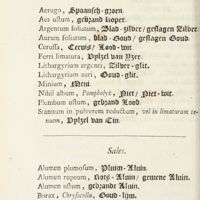 Aerugo, Spaansch-groen.
Aes ustum, gebrand koper.
Argentum foliatum, Blad-zilver/ geslagen Zilver
Aurum foliatum, blad-Goud/ geslagen Goud.
Cerussa, Ceruis/ Lood-wit.
Ferri limatura, Vylzel van Yzer.
Lithargyrium argenti, Zilver-glit.
Lithargyrium auri, Goud-glit.
Minium, Meni.
Nihil album, Pompholyx, Niet/ Niet-wit.
Plumbum ustum, gebrand Lood.
Stannum in pulverem redactum, vel in limaturam te-
narum, Vylzel van Tin.
Sales.
Alumen plumosum, Pluim-Aluin.
Alumen rupeum, Rots-Aluin/ gemene Aluin.
Alumen ustum, gebrande Aluin.
Borax, Chrysocolla, Goud-lijm.